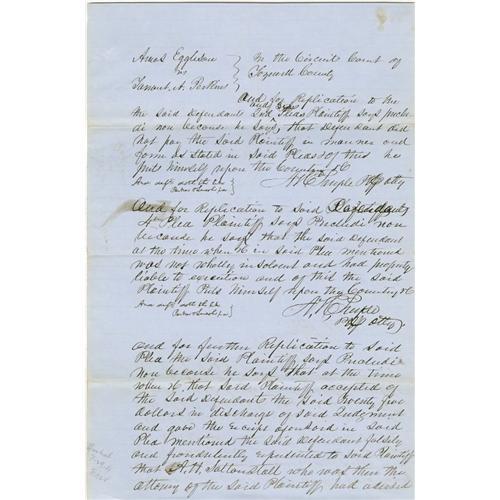 Amos Eggleson } In the Circuit Court of
vs } Tazewell County
Tennant A. Perkins
And for Replication to the
the said Defendants 2nd and 3rd Pleas Plaintiff says precludi
non because he says that Defendant did
not pay the said Plaintiff in manner and
form as stated in said Pleas & of this he
puts himself upon the Country &c
Atty
And for Replication to said Defendants
4th Plea Plaintiff says Precludi non
because he says that the said Defendant
at the time when &c in said Plea mentioned
was not wholly insolvent and had property
liable to execution and of this the said
Plaintiff Puts himself upon the Country &c
Atty
And for further Replication to said
Plea the said Plaintiff says Precludi
non because he says that at the time
when &c that said Plaintiff accepted of
the said Defendant the said Twenty five
dollars in discharge of said Judgment
and gave the receipt as in said
Plea mentioned the said Defendant falsely
and fraudulently to said Plaintiff
that A. H. Saltonstall who was then the
attorney of the said Plaintiff had advised